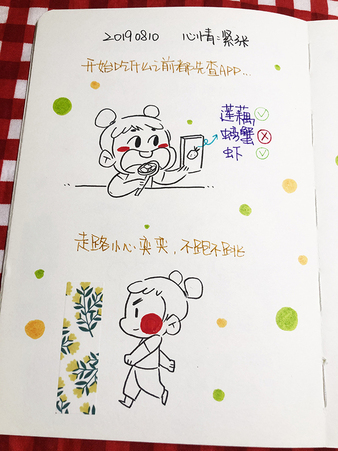 20190810 心情:紧张
开始吃什么之前都先查APP...
莲藕
螃蟹
虾
走路小心奕奕,不跑不跳